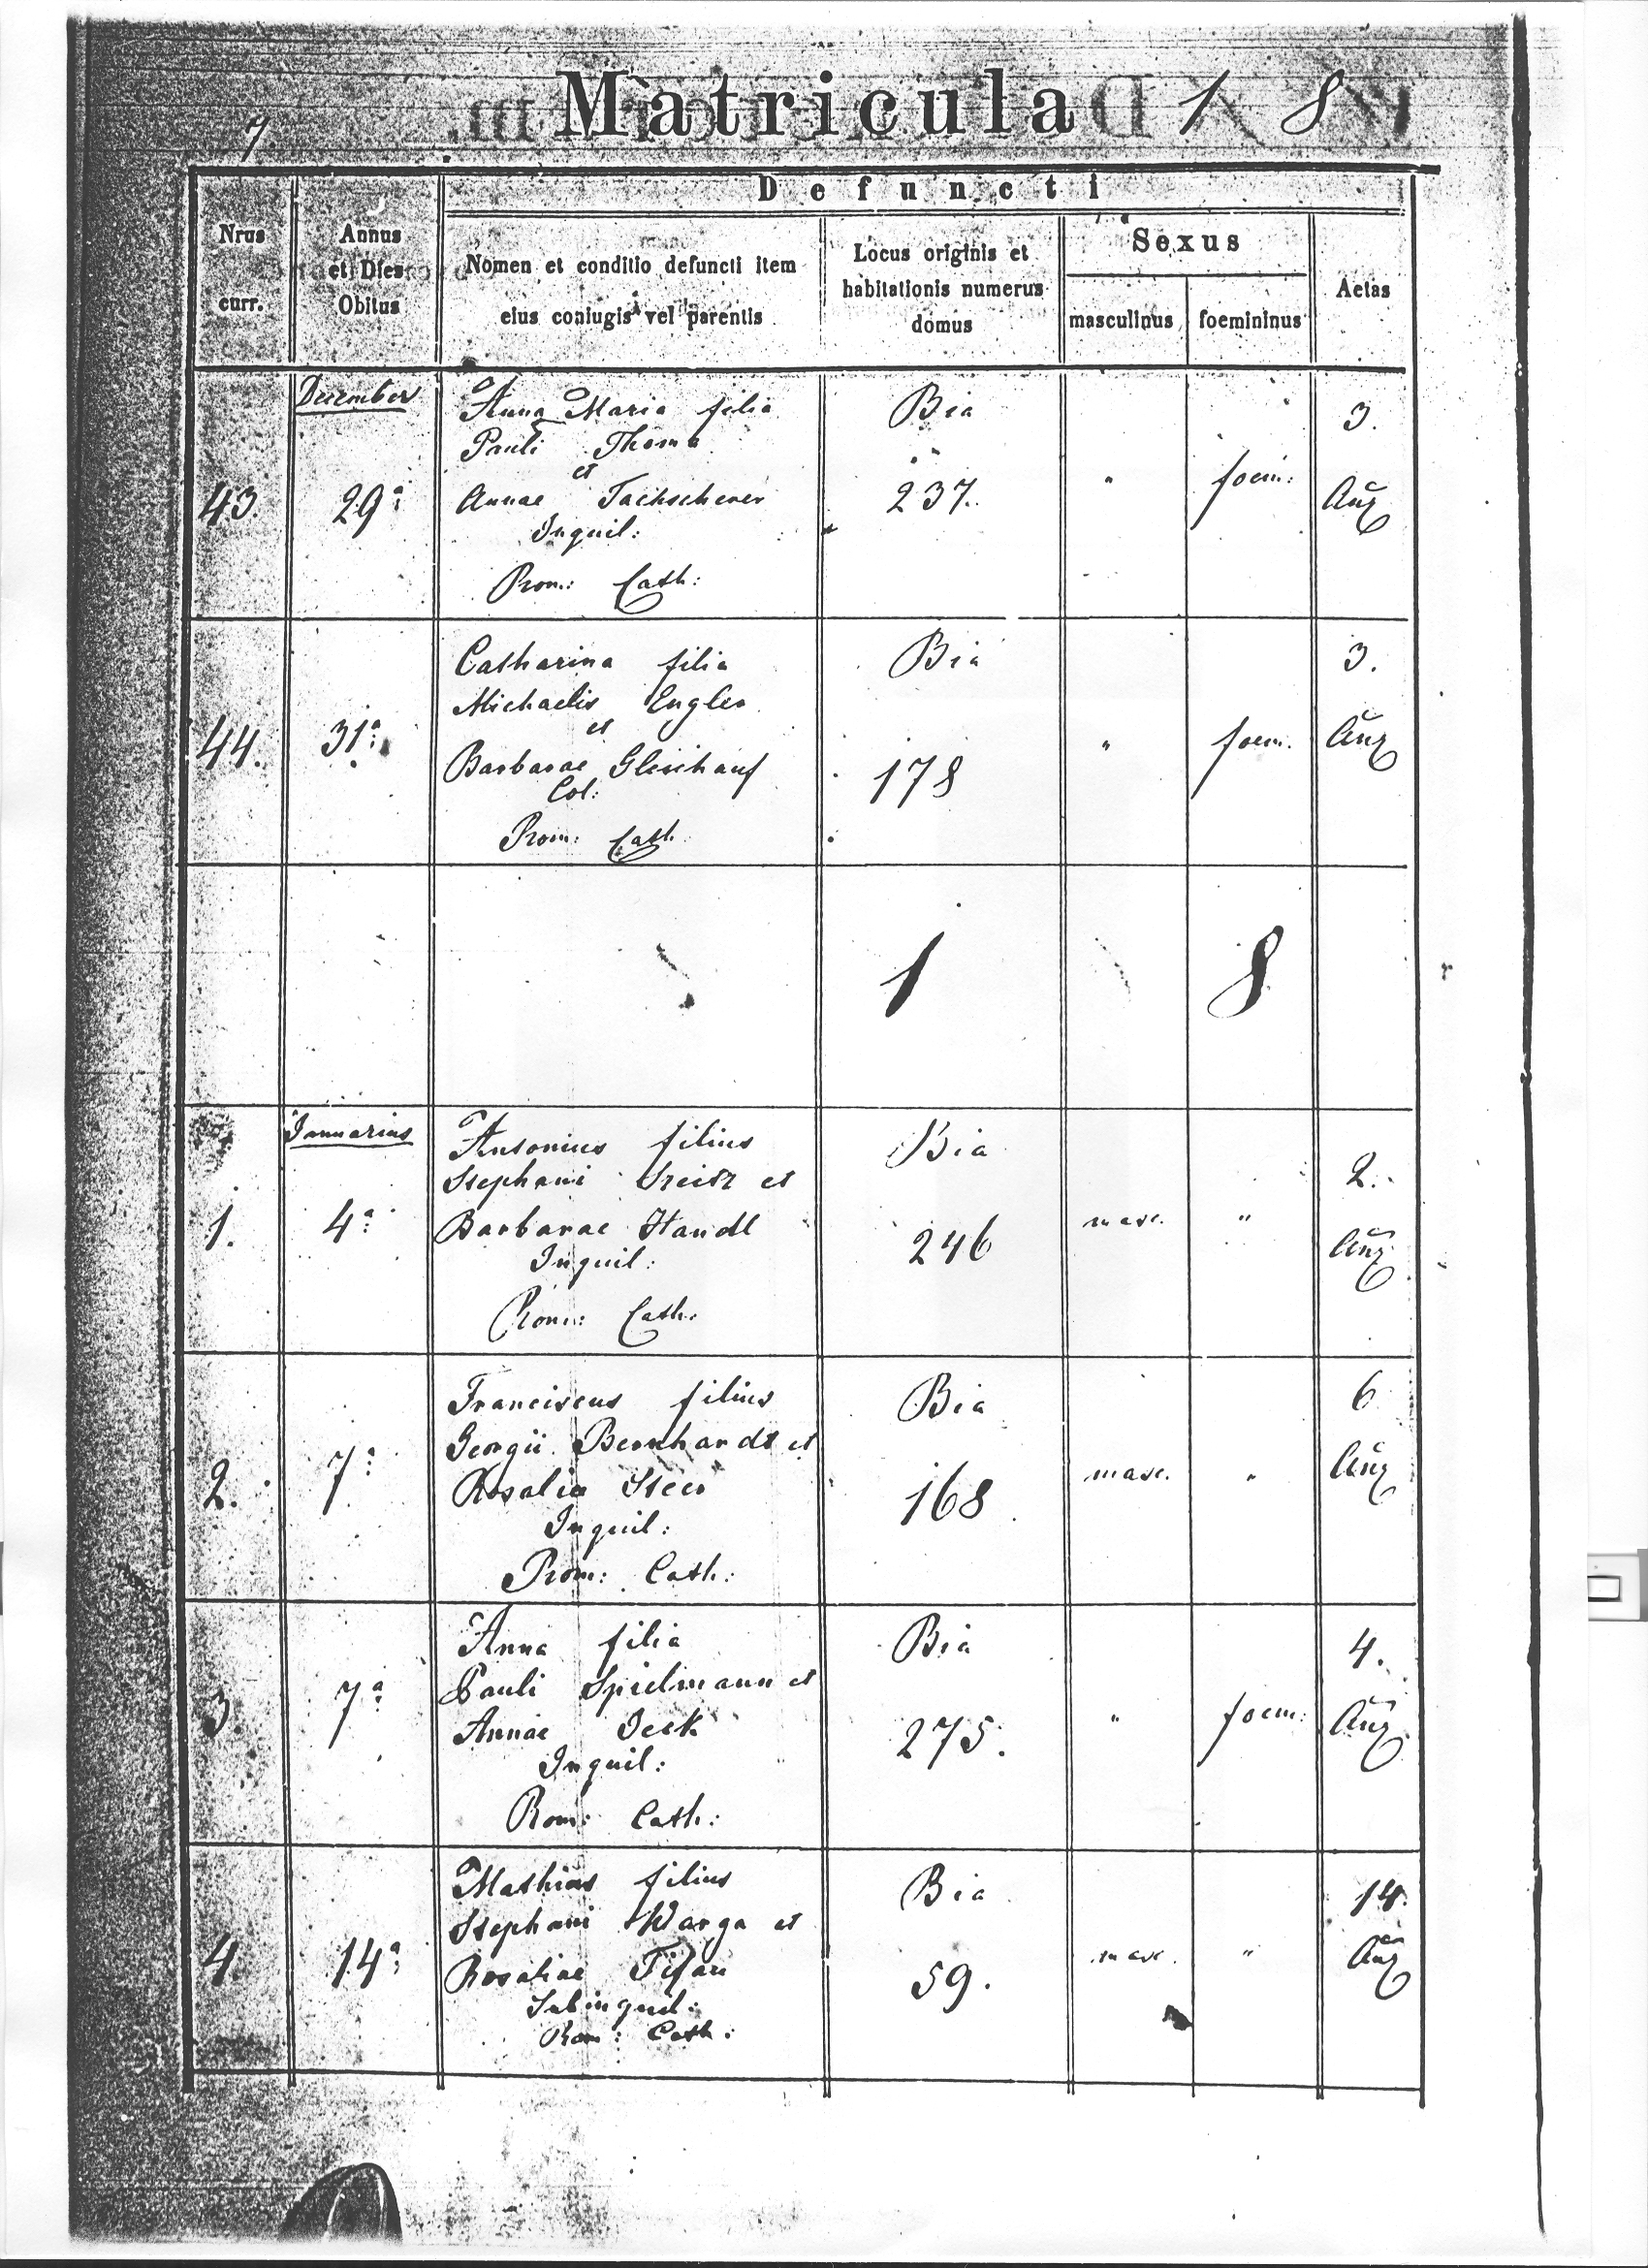 7.
Matricula 1 8
Defuncti
Nrus curr.
Annus et Dies Obitus
Nomen et conditio defuncti item eius coniugis vel parentis
Locus originis et habitationis numerus domus
Sexus
masculinus
foemininus
Aetas
December
43.
29a
Anna Maria filia
Pauli Thoma
et
Annae Tachscherer
Inquil:
Rom: Cath:
Bia
237.
"
foem:
3.
Añ
44.
31a
Catharina filia
Michaelis Engler
et
Barbarae Gleichauf
Col:
Rom: Cath
Bia
178
"
foem.
3.
Añ
1 8
Januarius
1.
4a
Antonius filius
Stephani et
Barbarae Handl
Inquil:
Rom: Cath:
Bia
246
masc.
"
2.
Añ
2.
7a
Franciscus filius
Georgii Bernhardt et
Rosalia Steer
Inquil:
Rom: Cath:
Bia
168
masc.
"
6
Añ
3
7a
Anna filia
Pauli Spielmann et
Annae Jeck
Inquil:
Rom: Cath:
Bia
275.
"
foem:
4.
Añ
4.
14a
Mathias filius
Stephani Warga et
Rosaliae
Subinquil:
Rom: Cath:
Bia
59.
masc.
"
14.
Añ